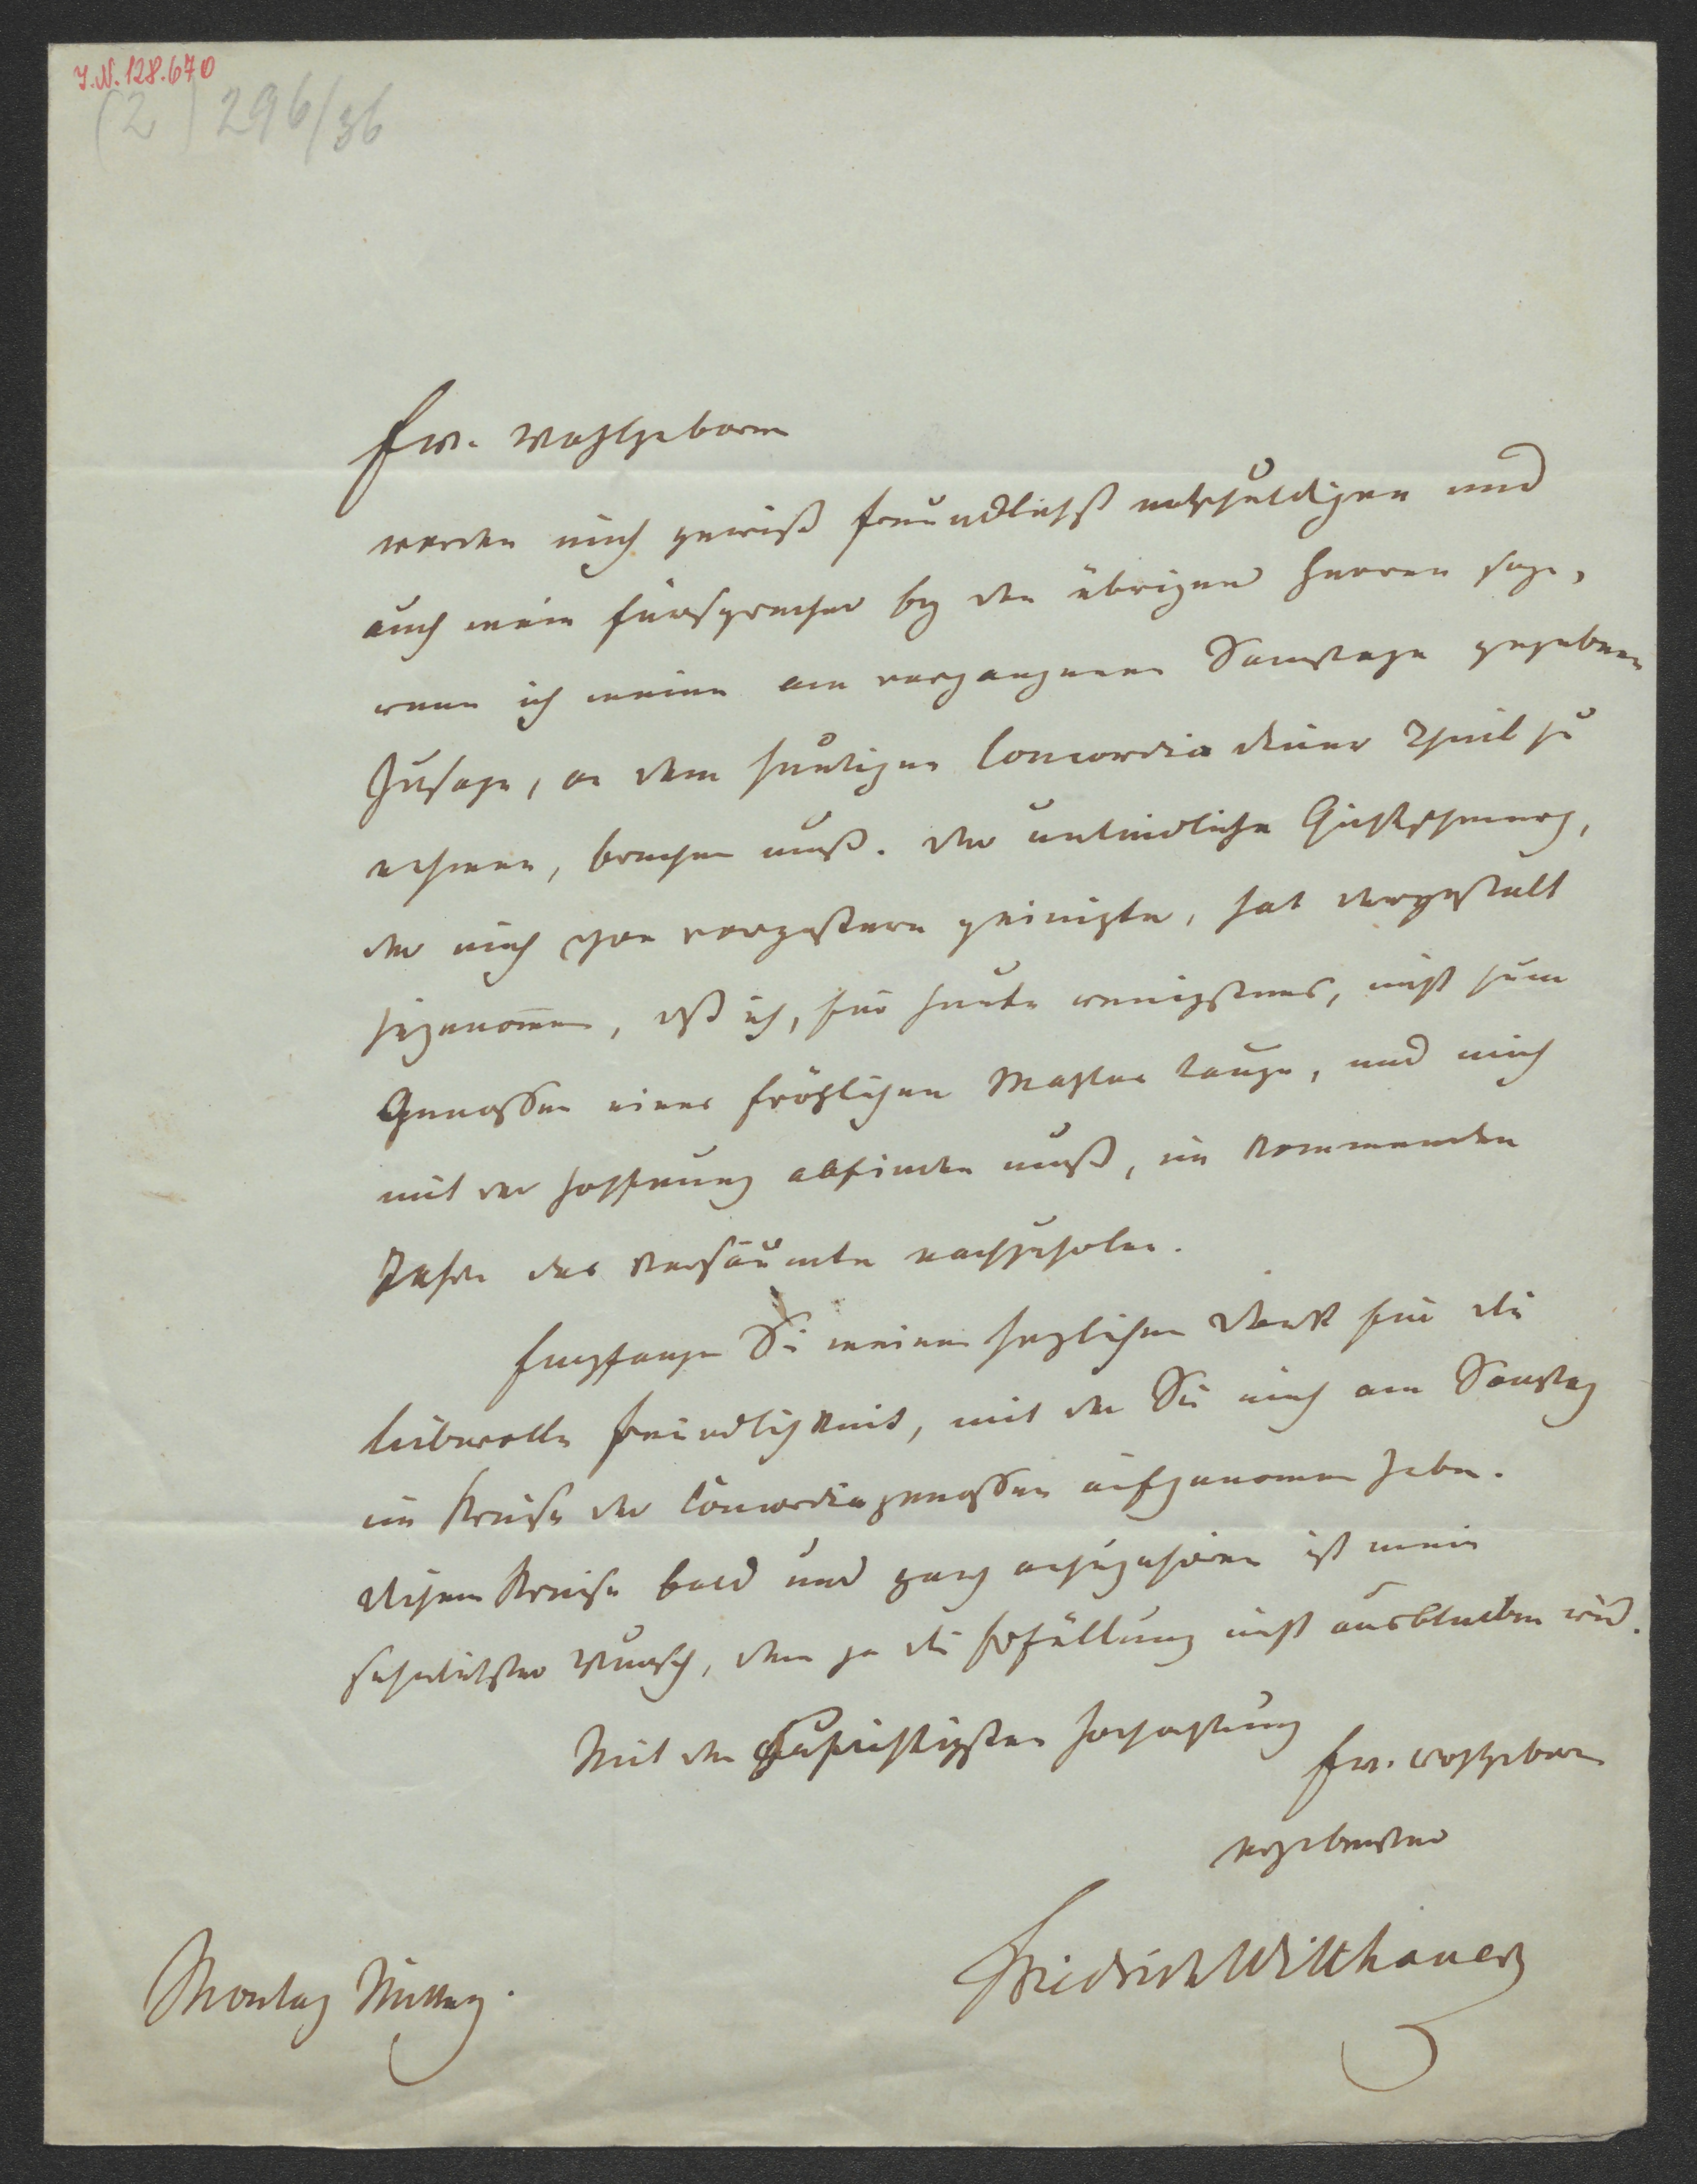 I.N. 128.670
(2) 296/36
Ew. Wohlgeboren
werden mich gewiß freundlichst entschuldigen und
auch mein Fürsprecher bey den übrigen Herren seyn,
wenn ich meine am vergangenen Samstage gegebene
Zusage, an dem heutigen Concordia diner Theil zu
nehmen, brechen muß. Der unleidliche Gichtschmerz,
der mich schon vorgestern peinigte, hat dergestalt
zugenomen, dß ich, für heute wenigstens, nicht zum
Genossen eines fröhlichen Mahles tauge, und mich
mit der Hoffnung abfinden muß, im kommenden
Jahre das Versäumte nachzuholen.
Empfangen Sie meinen herzlichen Dank für die
liebevolle Freundlichkeit, mit der Sie mich am Samstag
im Kreise der Concordiagenossen aufgenomen haben.
Diesem Kreise bald und ganz anzugehören ist mein
sehnlichster Wunsch, dem ja die Erfüllung nicht ausbleiben wird.
Mit der aufrichtigsten Hochachtung
Ew. Wohlgeboren
ergebenster
Friedrich Witthauer
Montag Mittag.